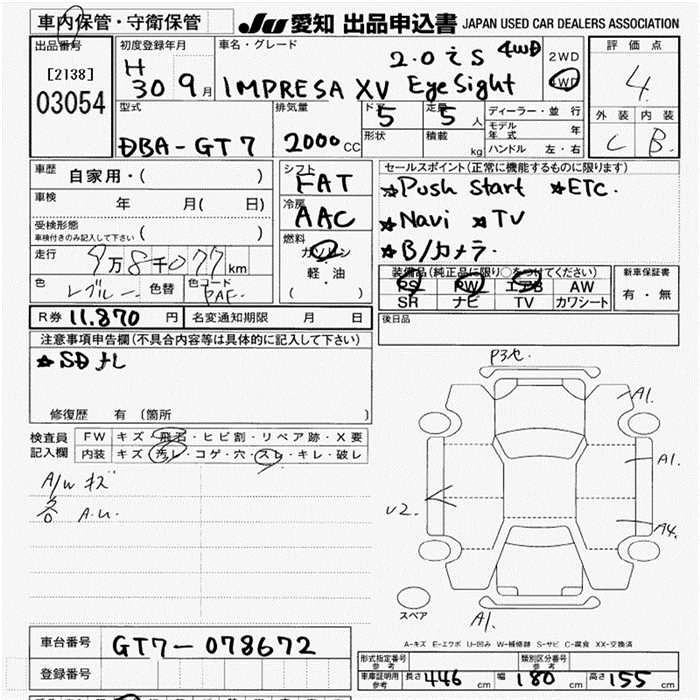 車内保管・守衛保管
JU 愛知 出品申込書 JAPAN USED CAR DEALERS ASSOCIATION
出品番号
[2138]
03054
初度登録年月
H
30 9月
車名・グレード
2.0i S 4WD
IMPRESA XV EyeSight
2WD
4WD
評価点
4
外装 内装
C B.
型式
DBA-GT7
排気量
2000cc
ドア
5
形状
定員
5人
積載
kg
ディーラー・並行
モデル年式 年
ハンドル 左・右
車歴
自家用・( )
車検
年 月( 日)
受検形態
車検付きのみ記入して下さい ( )
走行
9万8千077km
色
色替
色コード
シフト
FAT
冷房
AAC
燃料
ガソリン
軽・油
( )
セールスポイント(正常に機能するものに限ります)
★Push Start ★ETC.
★Navi ★TV
★B/カメラ.
装備品(純正品に限り○をつけてください)
PS PW エアB AW
SR ナビ TV カワシート
新車保証書
有・無
後日品
R券 11.870円
名変通知期限 月 日
注意事項申告欄(不具合内容等は具体的に記入して下さい)
★SDナL
修復歴 有 (箇所 )
検査員
記入欄
FW キズ・飛石・ヒビ割・リペア跡・X要
内装 キズ・汚レ・コゲ・穴・スレ・キレ・破レ
A/W キズ
各 A.U.
P3セ.
A1.
A1.
U2.
A4.
スペア
A1.
A-キズ E-エクボ U-凹み W-補修跡 S-サビ C-腐食 XX-交換済
車台番号
GT7-078672
登録番号
形式指定番号
参考
類別区分番号
参考
車庫証明用
参考
長さ 446cm 幅 180cm 高さ 155cm